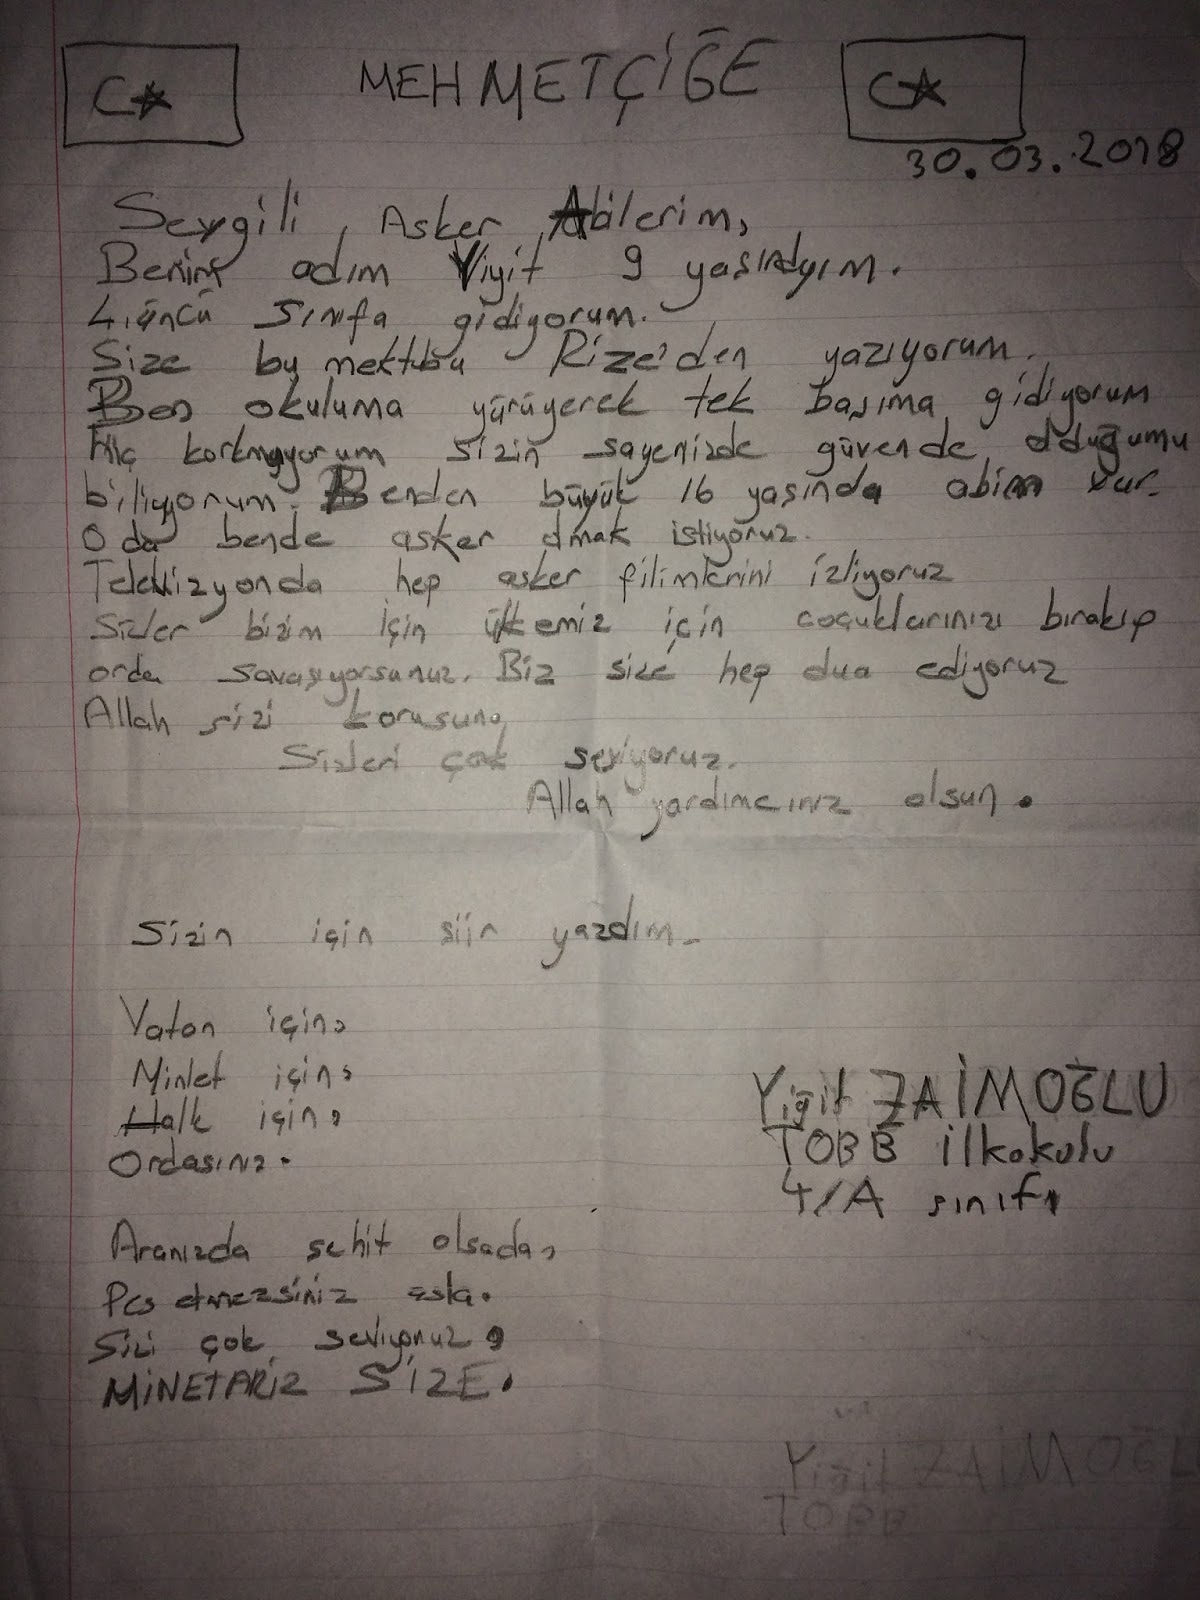 MEHMETÇİĞE
30.03.2018
Sevgili Asker Abilerim,
Benim adım Yiyit 9 yaşındayım.
4.üncü sınıfa gidiyorum.
Size bu mektubu Rize'den yazıyorum.
Ben okuluma yürüyerek tek başıma gidiyorum
Hiç korkmuyorum sizin sayenizde güvende olduğumu
biliyorum. Benden büyük 16 yaşında abim var.
O da bende asker olmak istiyoruz.
Televizyonda hep asker filimlerini izliyoruz
Sizler bizim için ülkemiz için çocuklarınızı bırakıp
orda savaşıyorsunuz. Biz size hep dua ediyoruz
Allah sizi korusun,
Sizleri çok seviyoruz.
Allah yardımcınız olsun.
Sizin için siir yazdım.
Vatan için,
Minlet için,
Halk için,
Ordasınız.
Yiğit ZAİMOĞLU
TOBB ilkokulu
4/A sınıfı
Aranızda şehit olsada,
Pes etmezsiniz asla.
Sizi çok seviyoruz,
MİNETARIZ SİZE.
Yiğit ZAİMOĞLU
TOBB